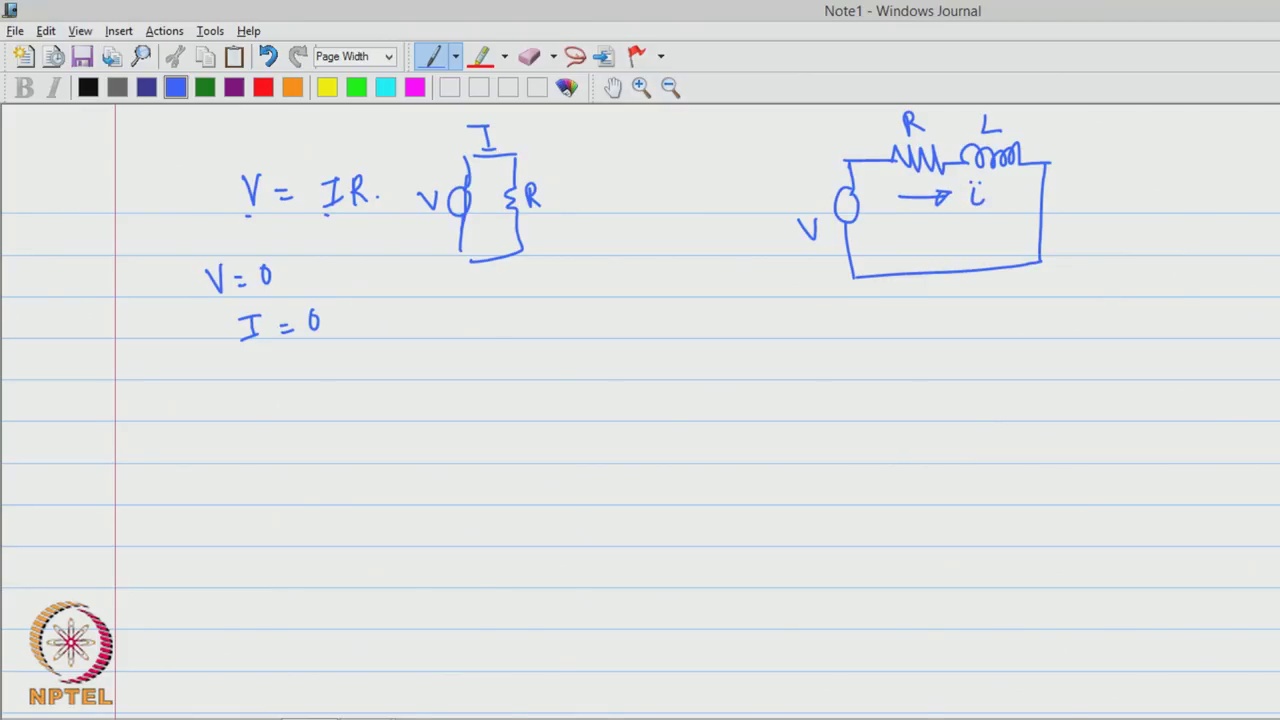 Note1 - Windows Journal
File Edit View Insert Actions Tools Help
Page Width
B I
I
V = IR.
V
R
V = 0
I = 0
R L
i
V
NPTEL